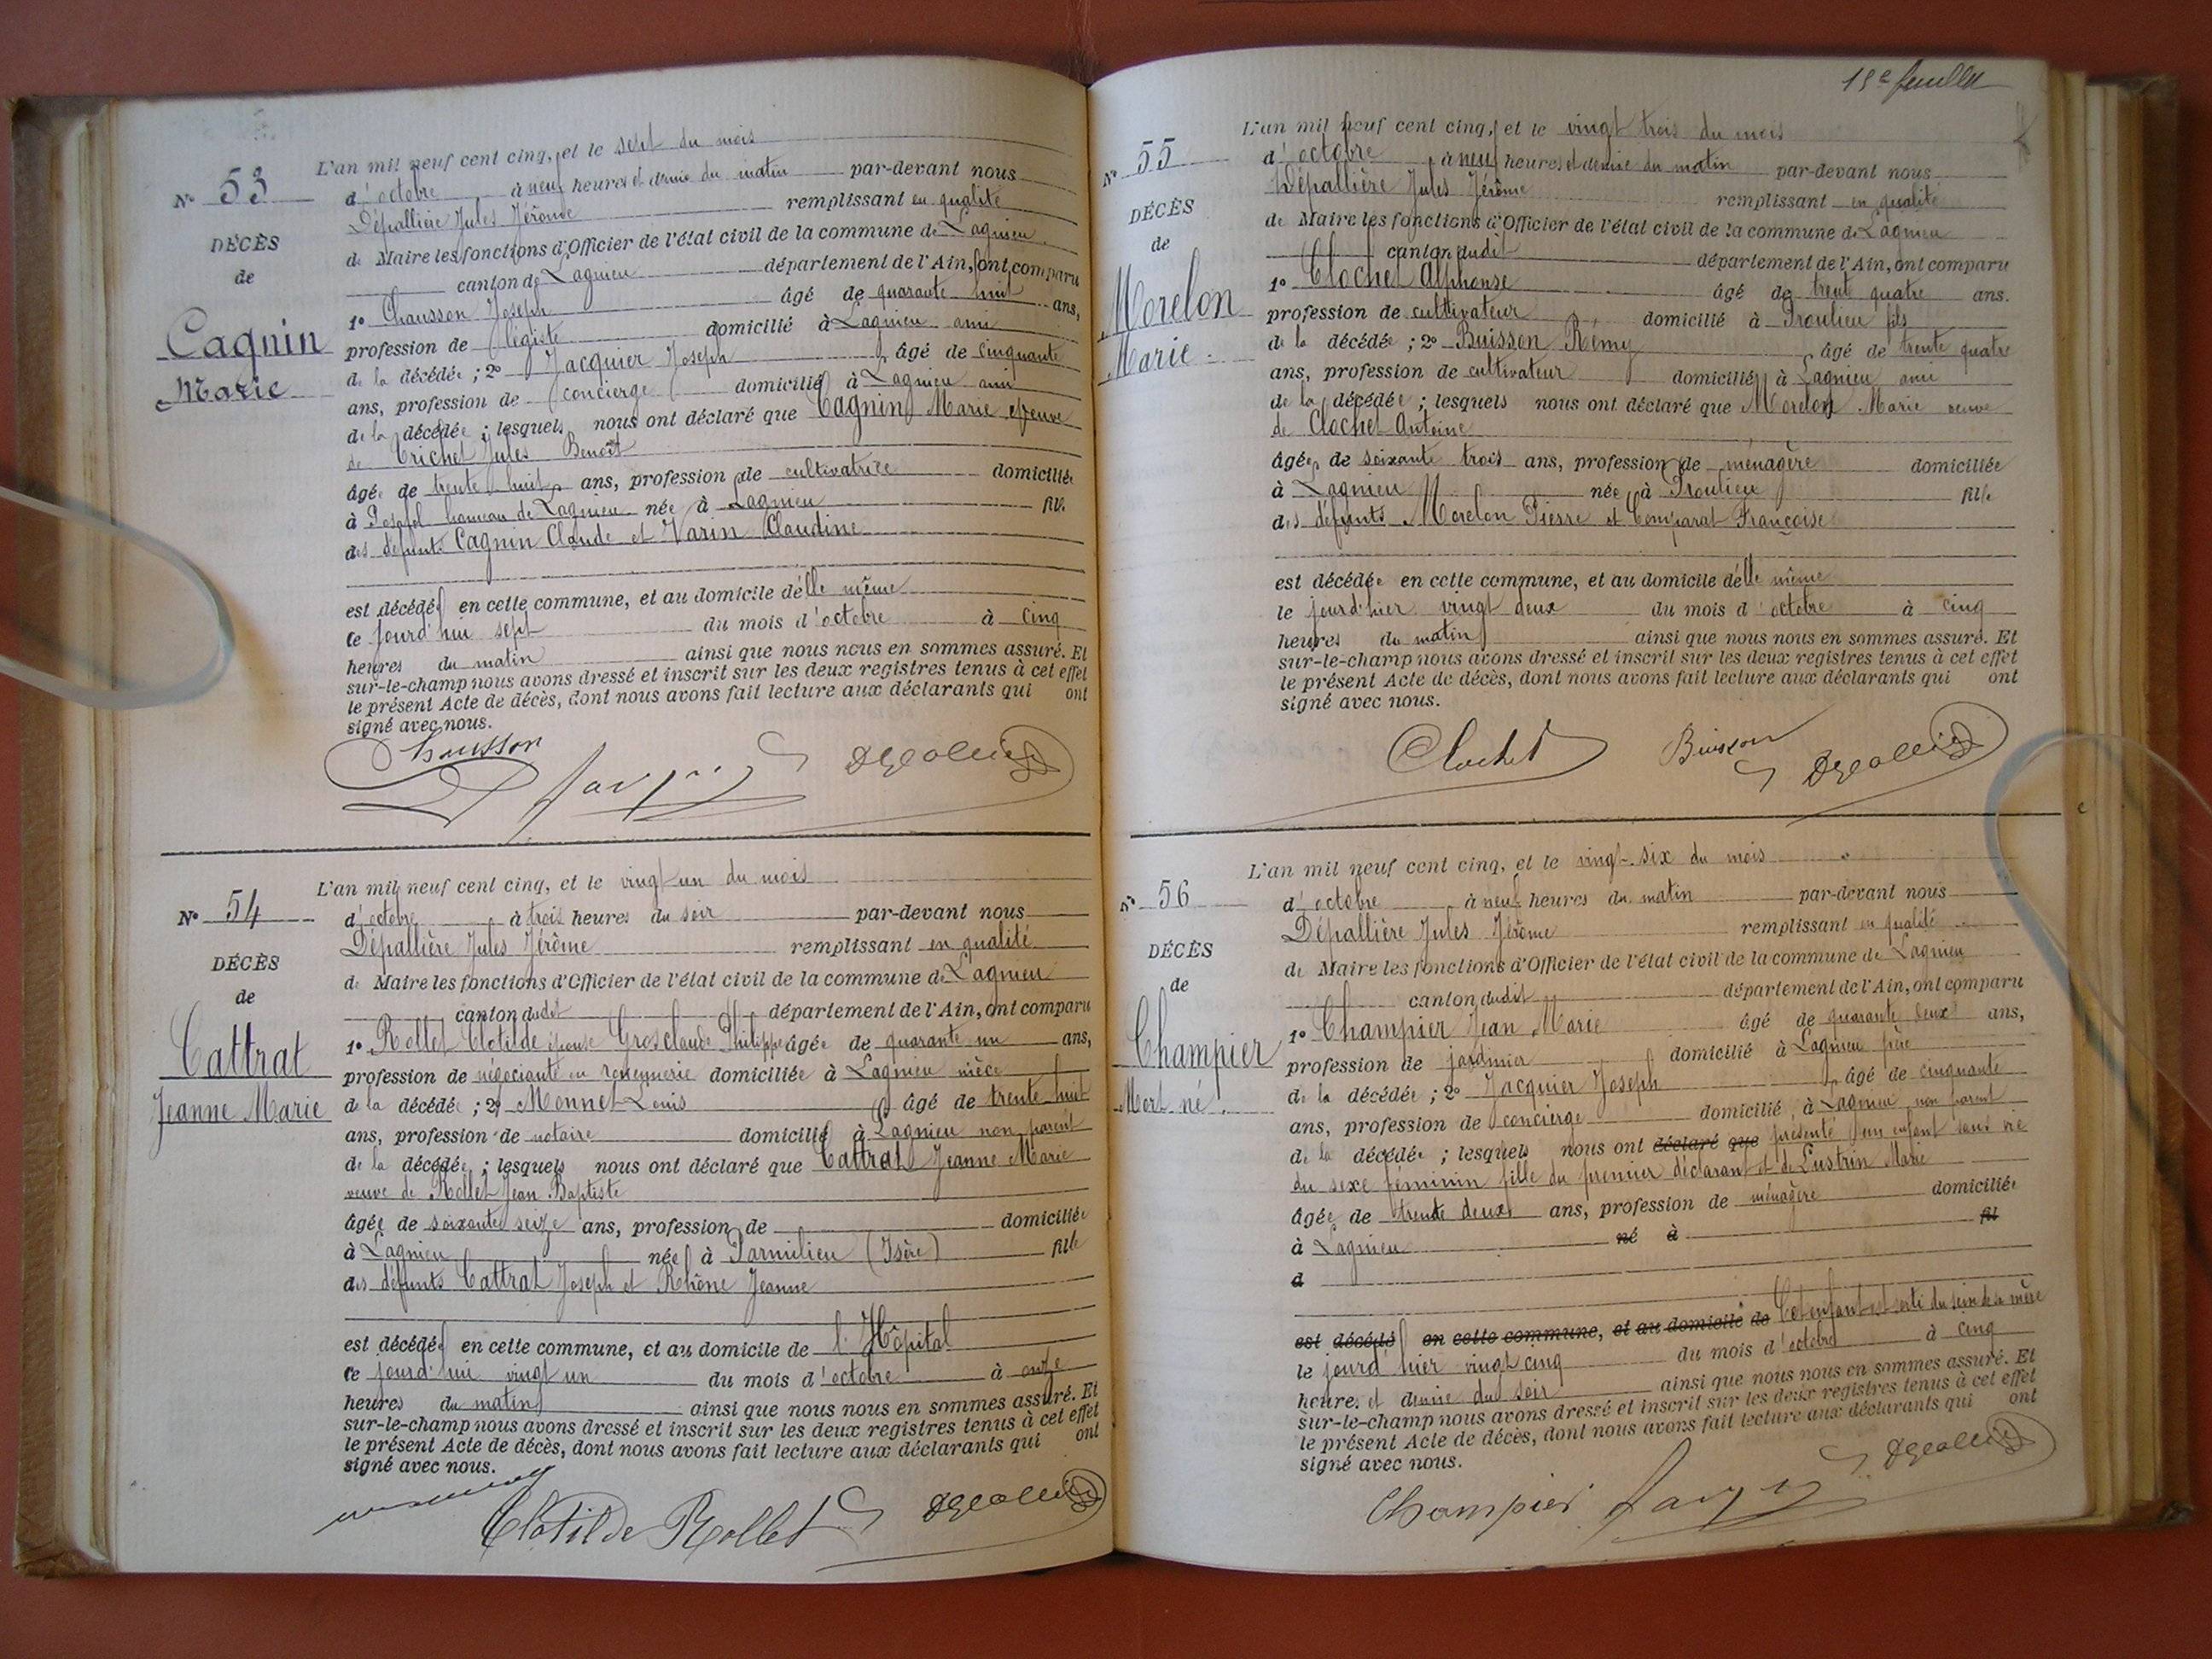 N° 53
DÉCÈS
de
Cagnin
Marie
L'an mil neuf cent cinq, et le sept du mois
d'octobre à neuf heures et demie du matin par-devant nous
Dépallière Jules Jérôme remplissant en qualité
de Maire les fonctions d'Officier de l'état civil de la commune de Lagnieu
canton de Lagnieu département de l'Ain, ont comparu
1° Chausson Joseph âgé de quarante huit ans,
profession de légiste domicilié à Lagnieu ami
de la décédée ; 2° Jacquier Joseph âgé de cinquante
ans, profession de concierge domicilié à Lagnieu ami
de la décédée ; lesquels nous ont déclaré que Cagnin Marie veuve
de Trichet Jules Benoît
âgée de trente huit ans, profession de cultivatrice domiciliée
à Posafol hameau de Lagnieu née à Lagnieu fille
des défunts Cagnin Claude et Varin Claudine
est décédée en cette commune, et au domicile d'elle même
ce jourd'hui sept du mois d'octobre à cinq
heures du matin ainsi que nous nous en sommes assuré. Et
sur-le-champ nous avons dressé et inscrit sur les deux registres tenus à cet effet
le présent Acte de décès, dont nous avons fait lecture aux déclarants qui ont
signé avec nous.
Chausson
N° 54
DÉCÈS
de
Cattrat
Jeanne Marie
L'an mil neuf cent cinq, et le vingt un du mois
d'octobre à trois heures du soir par-devant nous
Dépallière Jules Jérôme remplissant en qualité
de Maire les fonctions d'Officier de l'état civil de la commune de Lagnieu
canton dudit département de l'Ain, ont comparu
1° Rollet Clotilde épouse Grosclaude Philippe âgée de quarante un ans,
profession de négociante en rouennerie domiciliée à Lagnieu nièce
de la décédée ; 2° Monnet Louis âgé de trente huit
ans, profession de notaire domicilié à Lagnieu non parent
de la décédée ; lesquels nous ont déclaré que Cattrat Jeanne Marie
veuve de Rollet Jean Baptiste
âgée de soixante seize ans, profession de domiciliée
à Lagnieu née à Parmilieu (Isère) fille
des défunts Cattrat Joseph et Rhône Jeanne
est décédée en cette commune, et au domicile de l'Hôpital
ce jourd'hui vingt un du mois d'octobre à onze
heures du matin ainsi que nous nous en sommes assuré. Et
sur-le-champ nous avons dressé et inscrit sur les deux registres tenus à cet effet
le présent Acte de décès, dont nous avons fait lecture aux déclarants qui ont
signé avec nous.
Clotilde Rollet
19e feuillet
N° 55
DÉCÈS
de
Morelon
Marie
L'an mil neuf cent cinq, et le vingt trois du mois
d'octobre à neuf heures et demie du matin par-devant nous
Dépallière Jules Jérôme remplissant en qualité
de Maire les fonctions d'Officier de l'état civil de la commune de Lagnieu
canton dudit département de l'Ain, ont comparu
1° Clochet Alphonse âgé de trent quatre ans.
profession de cultivateur domicilié à Proulieu fils
de la décédée ; 2° Buisson Rémy âgé de trente quatre
ans, profession de cultivateur domicilié à Lagnieu ami
de la décédée ; lesquels nous ont déclaré que Morelon Marie veuve
de Clochet Antoine
âgée de soixante trois ans, profession de ménagère domiciliée
à Lagnieu née à Proulieu fille
des défunts Morelon Pierre et Comparat Françoise
est décédée en cette commune, et au domicile d'elle même
le jourd'hier vingt deux du mois d'octobre à cinq
heures du matin ainsi que nous nous en sommes assuré. Et
sur-le-champ nous avons dressé et inscrit sur les deux registres tenus à cet effet
le présent Acte de décès, dont nous avons fait lecture aux déclarants qui ont
signé avec nous.
Clochet Buisson
N° 56
DÉCÈS
de
Champier
Mort né.
L'an mil neuf cent cinq, et le vingt-six du mois
d'octobre à neuf heures du matin par-devant nous
Dépallière Jules Jérôme remplissant en qualité
de Maire les fonctions d'Officier de l'état civil de la commune de Lagnieu
canton dudit département de l'Ain, ont comparu
1° Champier Jean Marie âgé de quarante deux ans,
profession de jardinier domicilié à Lagnieu père
de la décédée ; 2° Jacquier Joseph âgé de cinquante
ans, profession de concierge domicilié à Lagnieu non parent
de la décédée ; lesquels nous ont déclaré que présenté un enfant sans vie
du sexe féminin fille du premier déclarant et de Lustrin Marie
âgée de trente deux ans, profession de ménagère domiciliée
à Lagnieu né à fil
d
est décédé en cette commune, et au domicile de Cet enfant est sorti du sein de sa mère
le jourd'hier vingt cinq du mois d'octobre à cinq
heures et demie du soir ainsi que nous nous en sommes assuré. Et
sur-le-champ nous avons dressé et inscrit sur les deux registres tenus à cet effet
le présent Acte de décès, dont nous avons fait lecture aux déclarants qui ont
signé avec nous.
Champier